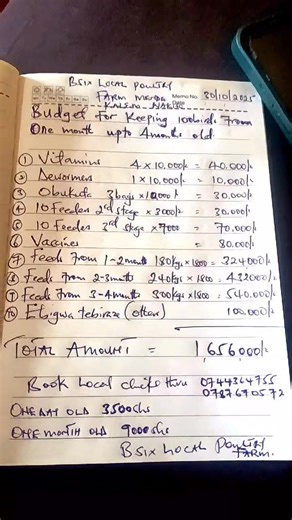 BSIX LOCAL POULTRY
FARM
Memo No. 30/10/2025
Date
Budget for Keeping 100birds From
One month upto 4months old
① Vitamins 4 x 10,000/= = 40.000/=
② Dewormers 1 x 10.000/= = 10.000/=
③ 3bags x 10,000/= = 30.000/=
④ 10 Feeders 2nd stage x 3000/= = 30.000/=
⑤ 10 Feeders 3rd stage x 7000 = 70.000/=
⑥ Vaccines = 80.000/=
⑦ Feeds from 1-2months 180kgs x 1800 = 324000/=
⑧ Feeds from 2-3months 240kgs x 1800 = 432000/=
⑨ Feeds from 3-4months 300kgs x 1800 = 540.000/=
⑩ Ebigwa tebiraze (others) 100.000/=
TOTAL AMOUNT = 1,656000/=
Book Local chicks thru 0744364755
0787670572
ONE DAY OLD 3500shs
ONE MONTH OLD 9000shs
BSIX LOCAL POULTRY
FARM.